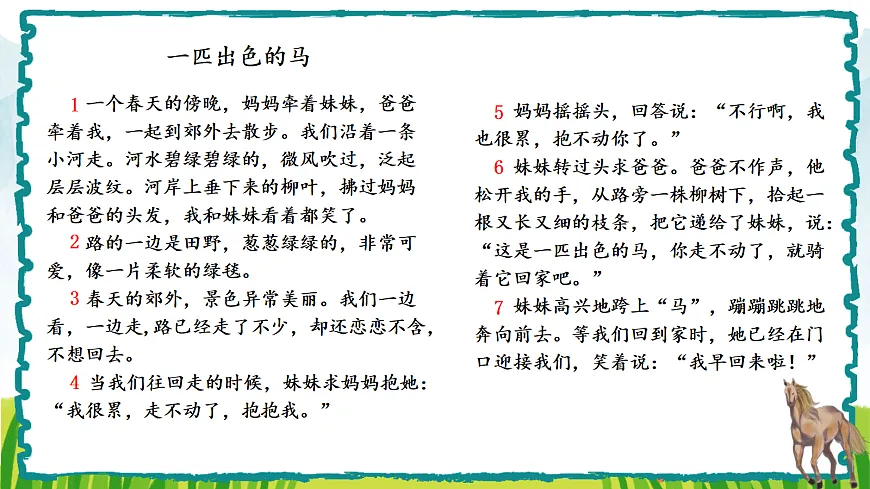 一匹出色的马
1 一个春天的傍晚，妈妈牵着妹妹，爸爸
牵着我，一起到郊外去散步。我们沿着一条
小河走。河水碧绿碧绿的，微风吹过，泛起
层层波纹。河岸上垂下来的柳叶，拂过妈妈
和爸爸的头发，我和妹妹看着都笑了。
2 路的一边是田野，葱葱绿绿的，非常可
爱，像一片柔软的绿毯。
3 春天的郊外，景色异常美丽。我们一边
看，一边走,路已经走了不少，却还恋恋不舍，
不想回去。
4 当我们往回走的时候，妹妹求妈妈抱她：
“我很累，走不动了，抱抱我。”
5 妈妈摇摇头，回答说：“不行啊，我
也很累，抱不动你了。”
6 妹妹转过头求爸爸。爸爸不作声，他
松开我的手，从路旁一株柳树下，拾起一
根又长又细的枝条，把它递给了妹妹，说：
“这是一匹出色的马，你走不动了，就骑
着它回家吧。”
7 妹妹高兴地跨上“马”，蹦蹦跳跳地
奔向前去。等我们回到家时，她已经在门
口迎接我们，笑着说：“我早回来啦！”